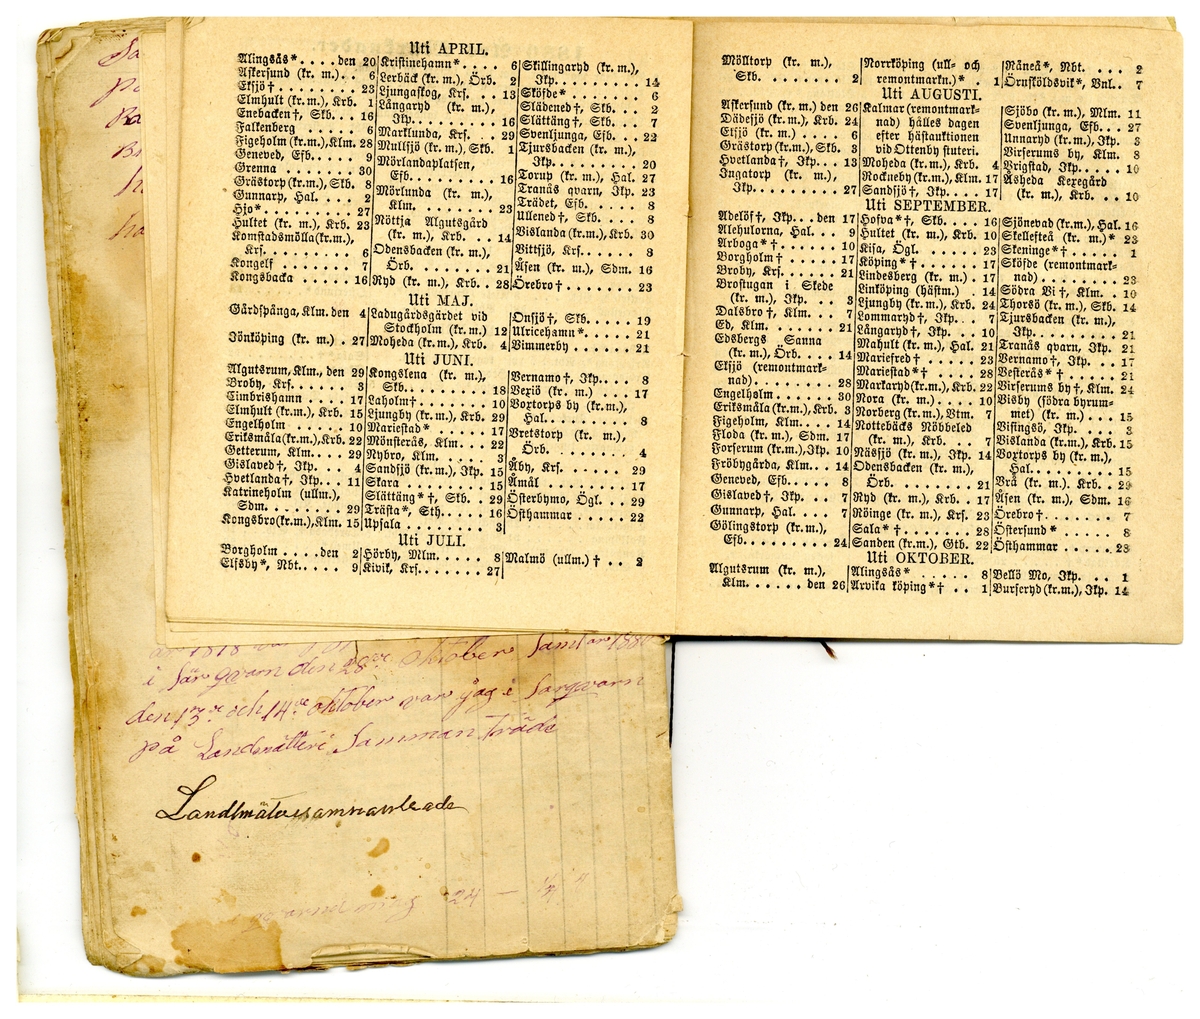 Uti APRIL.
Alingsås* . . . . den 20
Askersund (kr. m.) . . 6
Eksjö † . . . . . . . . 23
Elmhult (kr. m.), Krb. 1
Enebacken†, Skb. . . 16
Falkenberg . . . . . . 6
Figeholm (kr. m.), Klm. 28
Geneved, Efb. . . . . 9
Grenna . . . . . . . . 30
Grästorp (kr. m.), Skb. 8
Gunnarp, Hal. . . . . 2
Hjo* . . . . . . . . . 27
Hultet (kr. m.), Krb. 23
Komstadsmölla (kr. m.),
Krf. . . . . . . . . 6
Kongelf . . . . . . . 7
Kongsbacka . . . . . 16
Kristinehamn* . . . . 6
Lerbäck (kr. m.), Örb. 2
Ljungaskog, Krf. . . 13
Långaryd (kr. m.),
Jkp. . . . . . . . . 16
Marklunda, Krf. . . . 29
Mullsjö (kr. m.), Skb. 1
Mörlandaplatsen,
Efb. . . . . . . . . 16
Mörlunda (kr. m.),
Klm. . . . . . . . . 23
Nöttja Algutsgård
(kr. m.), Krb. . . . 14
Odensbacken (kr. m.),
Örb. . . . . . . . . 21
Ryd (kr. m.), Krb. . . 28
Skillingaryd (kr. m.),
Jkp. . . . . . . . . 14
Sköfde* . . . . . . . 6
Slädened †, Skb. . . . 2
Slättäng †, Skb. . . . 7
Svenljunga, Efb. . . . 22
Tjursbacken (kr. m.),
Jkp. . . . . . . . . 20
Torup (kr. m.), Hal. 27
Tranås qvarn, Jkp. 23
Trädet, Efb. . . . . . 8
Ullened †, Skb. . . . 8
Vislanda (kr. m.), Krb. 30
Vittsjö, Krf. . . . . . 8
Åsen (kr. m.), Sdm. 16
Örebro † . . . . . . . 23
Uti MAJ.
Gårdspånga, Klm. den 4
Jönköping (kr. m.) . 27
Ladugårdsgärdet vid
Stockholm (kr. m.) 12
Moheda (kr. m.), Krb. 4
Onsjö †, Skb. . . . . 19
Ulricehamn* . . . . . 21
Vimmerby . . . . . . 21
Uti JUNI.
Algutsrum, Klm., den 29
Broby, Krf. . . . . . 3
Cimbrishamn . . . . 17
Elmhult (kr. m.), Krb. 15
Engelholm . . . . . . 10
Eriksmåla (kr. m.), Krb. 22
Getterum, Klm. . . . 29
Gislaved †, Jkp. . . . 4
Hvetlanda †, Jkp. . . 11
Katrineholm (ullm.),
Sdm. . . . . . . . . 29
Kongsbro (kr. m.), Klm. 15
Kongslena (kr. m.),
Skb. . . . . . . . . 18
Laholm † . . . . . . . 10
Ljungby (kr. m.), Krb. 29
Mariestad* . . . . . . 17
Mönsterås, Klm. . . . 22
Nybro, Klm. . . . . . 3
Sandsjö (kr. m.), Jkp. 15
Skara . . . . . . . . 15
Slättäng* †, Skb. . . 29
Trästa*, Sth. . . . . 16
Upsala . . . . . . . . 3
Vernamo †, Jkp. . . . 8
Vexiö (kr. m.) . . . . 17
Voxtorps by (kr. m.),
Hal. . . . . . . . . 8
Vretstorp (kr. m.),
Örb. . . . . . . . . 4
Åby, Krf. . . . . . . 29
Åmål . . . . . . . . . 17
Österbymo, Ögl. . . . 29
Östhammar . . . . . . 22
Uti JULI.
Borgholm . . . . den 2
Elfsby*, Nbt. . . . . 9
Hörby, Mlm. . . . . . 8
Kivik, Krf. . . . . . . 27
Malmö (ullm.) † . . 2
Mölltorp (kr. m.),
Skb. . . . . . . . . 2
Norrköping (ull- och
remontmarkn.)* 1
Råneå*, Nbt. . . . 2
Örnsköldsvik*, Vnl. . 7
Uti AUGUSTI.
Askersund (kr. m.) den 26
Dädesjö (kr. m.), Krb. 24
Eksjö (kr. m.) . . . . 6
Grästorp (kr. m.), Skb. 3
Hvetlanda †, Jkp. . . 13
Ingatorp (kr. m.),
Jkp. . . . . . . . . 27
Kalmar (remontmark-
nad) hålles dagen
efter hästauktionen
vid Ottenby stuteri.
Moheda (kr. m.), Krb. 4
Rockneby (kr. m.), Klm. 17
Sandsjö †, Jkp. . . . 17
Sjöbo (kr. m.), Mlm. 11
Svenljunga, Efb. . . . 27
Unnaryd (kr. m.), Jkp. 3
Virserums by, Klm. 8
Vrigstad, Jkp. . . . . 10
Åsheda Kexegård
(kr. m.), Krb. . . . 10
Uti SEPTEMBER.
Adelöf †, Jkp. . . den 17
Alehulorna, Hal. . . . 9
Arboga* † . . . . . . 10
Borgholm † . . . . . . 17
Broby, Krf. . . . . . 21
Brostugan i Skede
(kr. m.), Jkp. . . . 3
Dalsbro †, Klm. . . . 7
Ed, Klm. . . . . . . . 21
Edsbergs Sanna
(kr. m.), Örb. . . . 14
Eksjö (remontmark-
nad) . . . . . . . . 28
Engelholm . . . . . . 30
Eriksmåla (kr. m.), Krb. 3
Figeholm, Klm. . . . 14
Floda (kr. m.), Sdm. 17
Forserum (kr. m.), Jkp. 10
Fröbygårda, Klm. . . 14
Geneved, Efb. . . . . 8
Gislaved †, Jkp. . . . 7
Gunnarp, Hal. . . . . 7
Gölingstorp (kr. m.),
Efb. . . . . . . . . 24
Hofva* †, Skb. . . . . 16
Hultet (kr. m.), Krb. 10
Kisa, Ögl. . . . . . . 23
Köping* † . . . . . . 17
Lindesberg (kr. m.) . 17
Linköping (hästm.) . 14
Ljungby (kr. m.), Krb. 24
Lommaryd †, Jkp. . . 7
Långaryd †, Jkp. . . 10
Mahult (kr. m.), Hal. 21
Mariefred † . . . . . 23
Mariestad* † . . . . . 28
Markaryd (kr. m.), Krb. 22
Nora (kr. m.) . . . . 10
Norberg (kr. m.), Vtm. 7
Nottebäcks Nöbbeled
(kr. m.), Krb. . . . 7
Näsjö (kr. m.), Jkp. 14
Odensbacken (kr. m.),
Örb. . . . . . . . . 21
Ryd (kr. m.), Krb. . 17
Röinge (kr. m.), Krf. 23
Sala* † . . . . . . . . 28
Sanden (kr. m.), Gtb. 22
Sjönevad (kr. m.), Hal. 16
Skellefteå (kr. m.)* 23
Skeninge* † . . . . . 1
Sköfde (remontmark-
nad) . . . . . . . . 23
Södra Vi †, Klm. . . 10
Thorsö (kr. m.), Skb. 14
Tjursbacken (kr. m.),
Jkp. . . . . . . . . 21
Tranås qvarn, Jkp. 21
Vernamo †, Jkp. . . . 17
Vesterås* † . . . . . 21
Virserums by †, Klm. 24
Visby (södra byrum-
met) (kr. m.) . . . 15
Visingsö, Jkp. . . . . 3
Vislanda (kr. m.), Krb. 15
Voxtorps by (kr. m.),
Hal. . . . . . . . . 15
Vrå (kr. m.), Krb. . . 29
Åsen (kr. m.), Sdm. 16
Örebro † . . . . . . . 7
Östersund* . . . . . . 8
Östhammar . . . . . . 28
Uti OKTOBER.
Algutsrum (kr. m.),
Klm. . . . . . . den 26
Alingsås* . . . . . . 8
Arvika köping* † . . 1
Bellö Mo, Jkp. . . . 1
Burseryd (kr. m.), Jkp. 14
i Särqvarn den 28de oktober Samt år 188
den 13de och 14de oktober var jag i Sarqvarn
på Landmätteri Samman träde
Landtmäterisammanträde
24 —